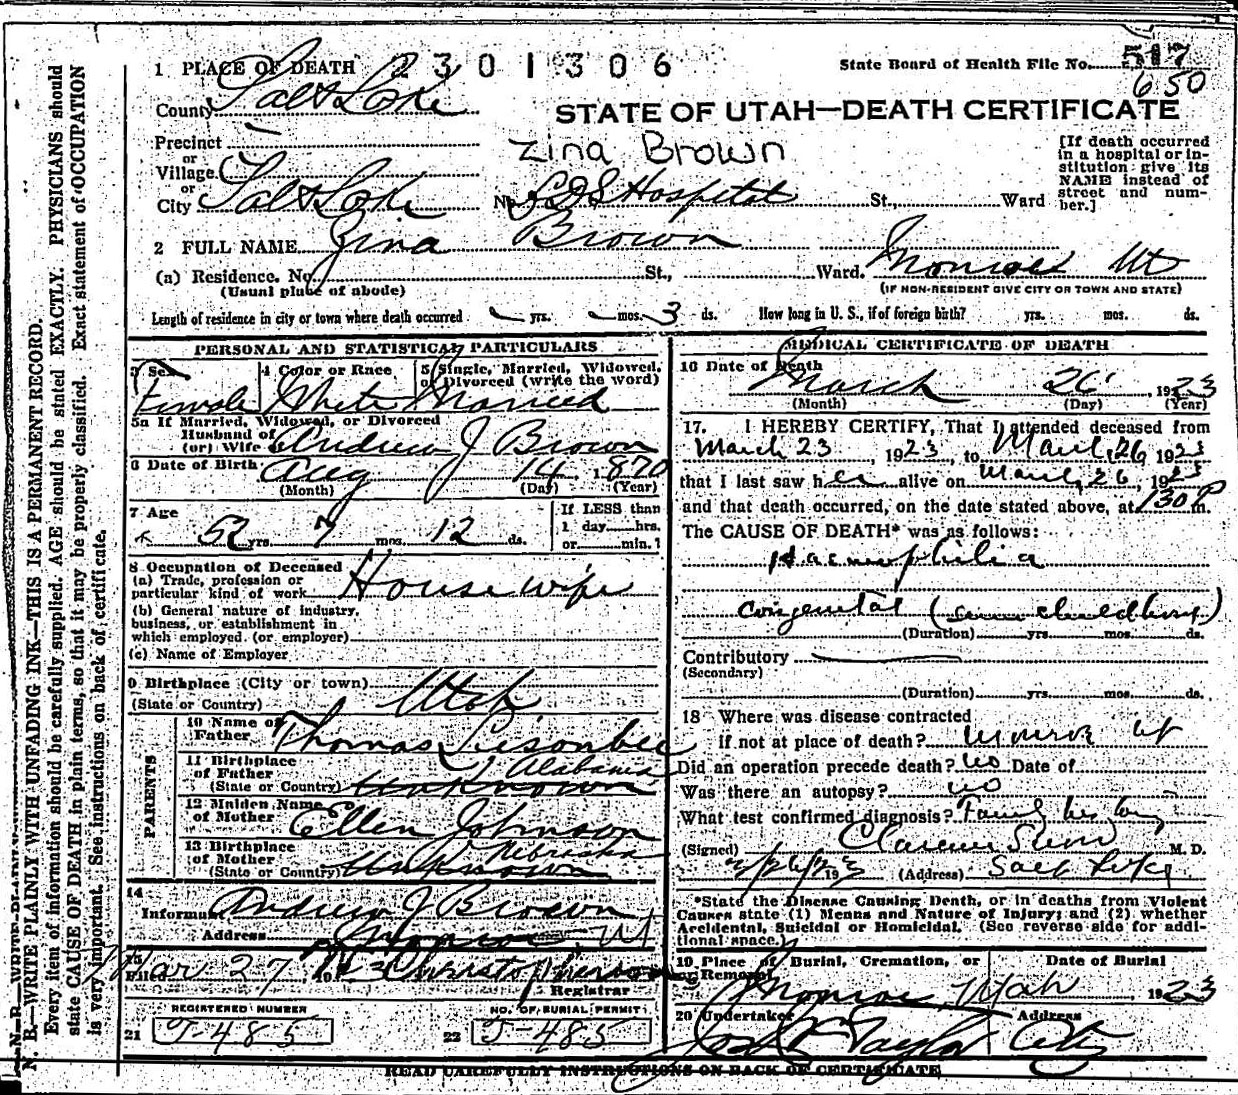 2301306
1 PLACE OF DEATH
State Board of Health File No.
650
County Salt Lake
STATE OF UTAH—DEATH CERTIFICATE
Precinct
Zina Brown
or
Village
or
City Salt Lake No. LDS Hospital St., Ward
[If death occurred in a hospital or institution give its NAME instead of street and number.]
2 FULL NAME Zina Brown
(a) Residence. No. St., Ward. Monroe Ut
(Usual place of abode) (IF NON-RESIDENT GIVE CITY OR TOWN AND STATE)
Length of residence in city or town where death occurred yrs. mos. 3 ds. How long in U. S., if of foreign birth? yrs. mos. ds.
PERSONAL AND STATISTICAL PARTICULARS
3 Sex 4 Color or Race 5 Single, Married, Widowed, or Divorced (write the word)
Female White Married
5a If Married, Widowed, or Divorced
Husband of
(or) Wife Andrew J Brown
6 Date of Birth Aug 14, 1870
(Month) (Day) (Year)
7 Age 52 yrs. 7 mos. 12 ds.
If LESS than
1 day hrs.
or min.?
8 Occupation of Deceased
(a) Trade, profession or
particular kind of work House wife
(b) General nature of industry,
business, or establishment in
which employed (or employer)
(c) Name of Employer
9 Birthplace (City or town)
(State or Country) Utah
PARENTS
10 Name of
Father Thomas Lisonbee
11 Birthplace
of Father Alabama
(State or Country) Unknown
12 Maiden Name
of Mother Ellen Johnson
13 Birthplace
of Mother Nebraska
(State or Country) Unknown
14
Informant Andrew J Brown
Address Monroe, Ut
15
Filed Mar 27, 1923 Christopherson
Registrar
REGISTERED NUMBER NO. OF BURIAL PERMIT
21 J-485 22 J-485
MEDICAL CERTIFICATE OF DEATH
16 Date of Death
March 26, 1923
(Month) (Day) (Year)
17. I HEREBY CERTIFY, That I attended deceased from
March 23, 1923, to March 26, 1923
that I last saw her alive on March 26, 1923
and that death occurred, on the date stated above, at 130 P m.
The CAUSE OF DEATH* was as follows:
Haemophilia
congenital (
(Duration) yrs. mos. ds.
Contributory
(Secondary)
(Duration) yrs. mos. ds.
18 Where was disease contracted
if not at place of death? Monroe Ut
Did an operation precede death? no Date of
Was there an autopsy? no
What test confirmed diagnosis? Family history
(Signed) Clarence Snow M. D.
3/26/1923 (Address) Salt Lake
*State the Disease Causing Death, or in deaths from Violent
Causes state (1) Means and Nature of Injury; and (2) whether
Accidental, Suicidal or Homicidal. (See reverse side for addi-
tional space.)
19 Place of Burial, Cremation, or Removal Date of Burial
Monroe Utah, 1923
20 Undertaker Address
Jos Wm Taylor City
READ CAREFULLY INSTRUCTIONS ON BACK OF CERTIFICATE
N. B.—WRITE PLAINLY WITH UNFADING INK—THIS IS A PERMANENT RECORD.
Every item of information should be carefully supplied. AGE should be stated EXACTLY. PHYSICIANS should
state CAUSE OF DEATH in plain terms, so that it may be properly classified. Exact statement of OCCUPATION
is very important. See instructions on back of certificate.